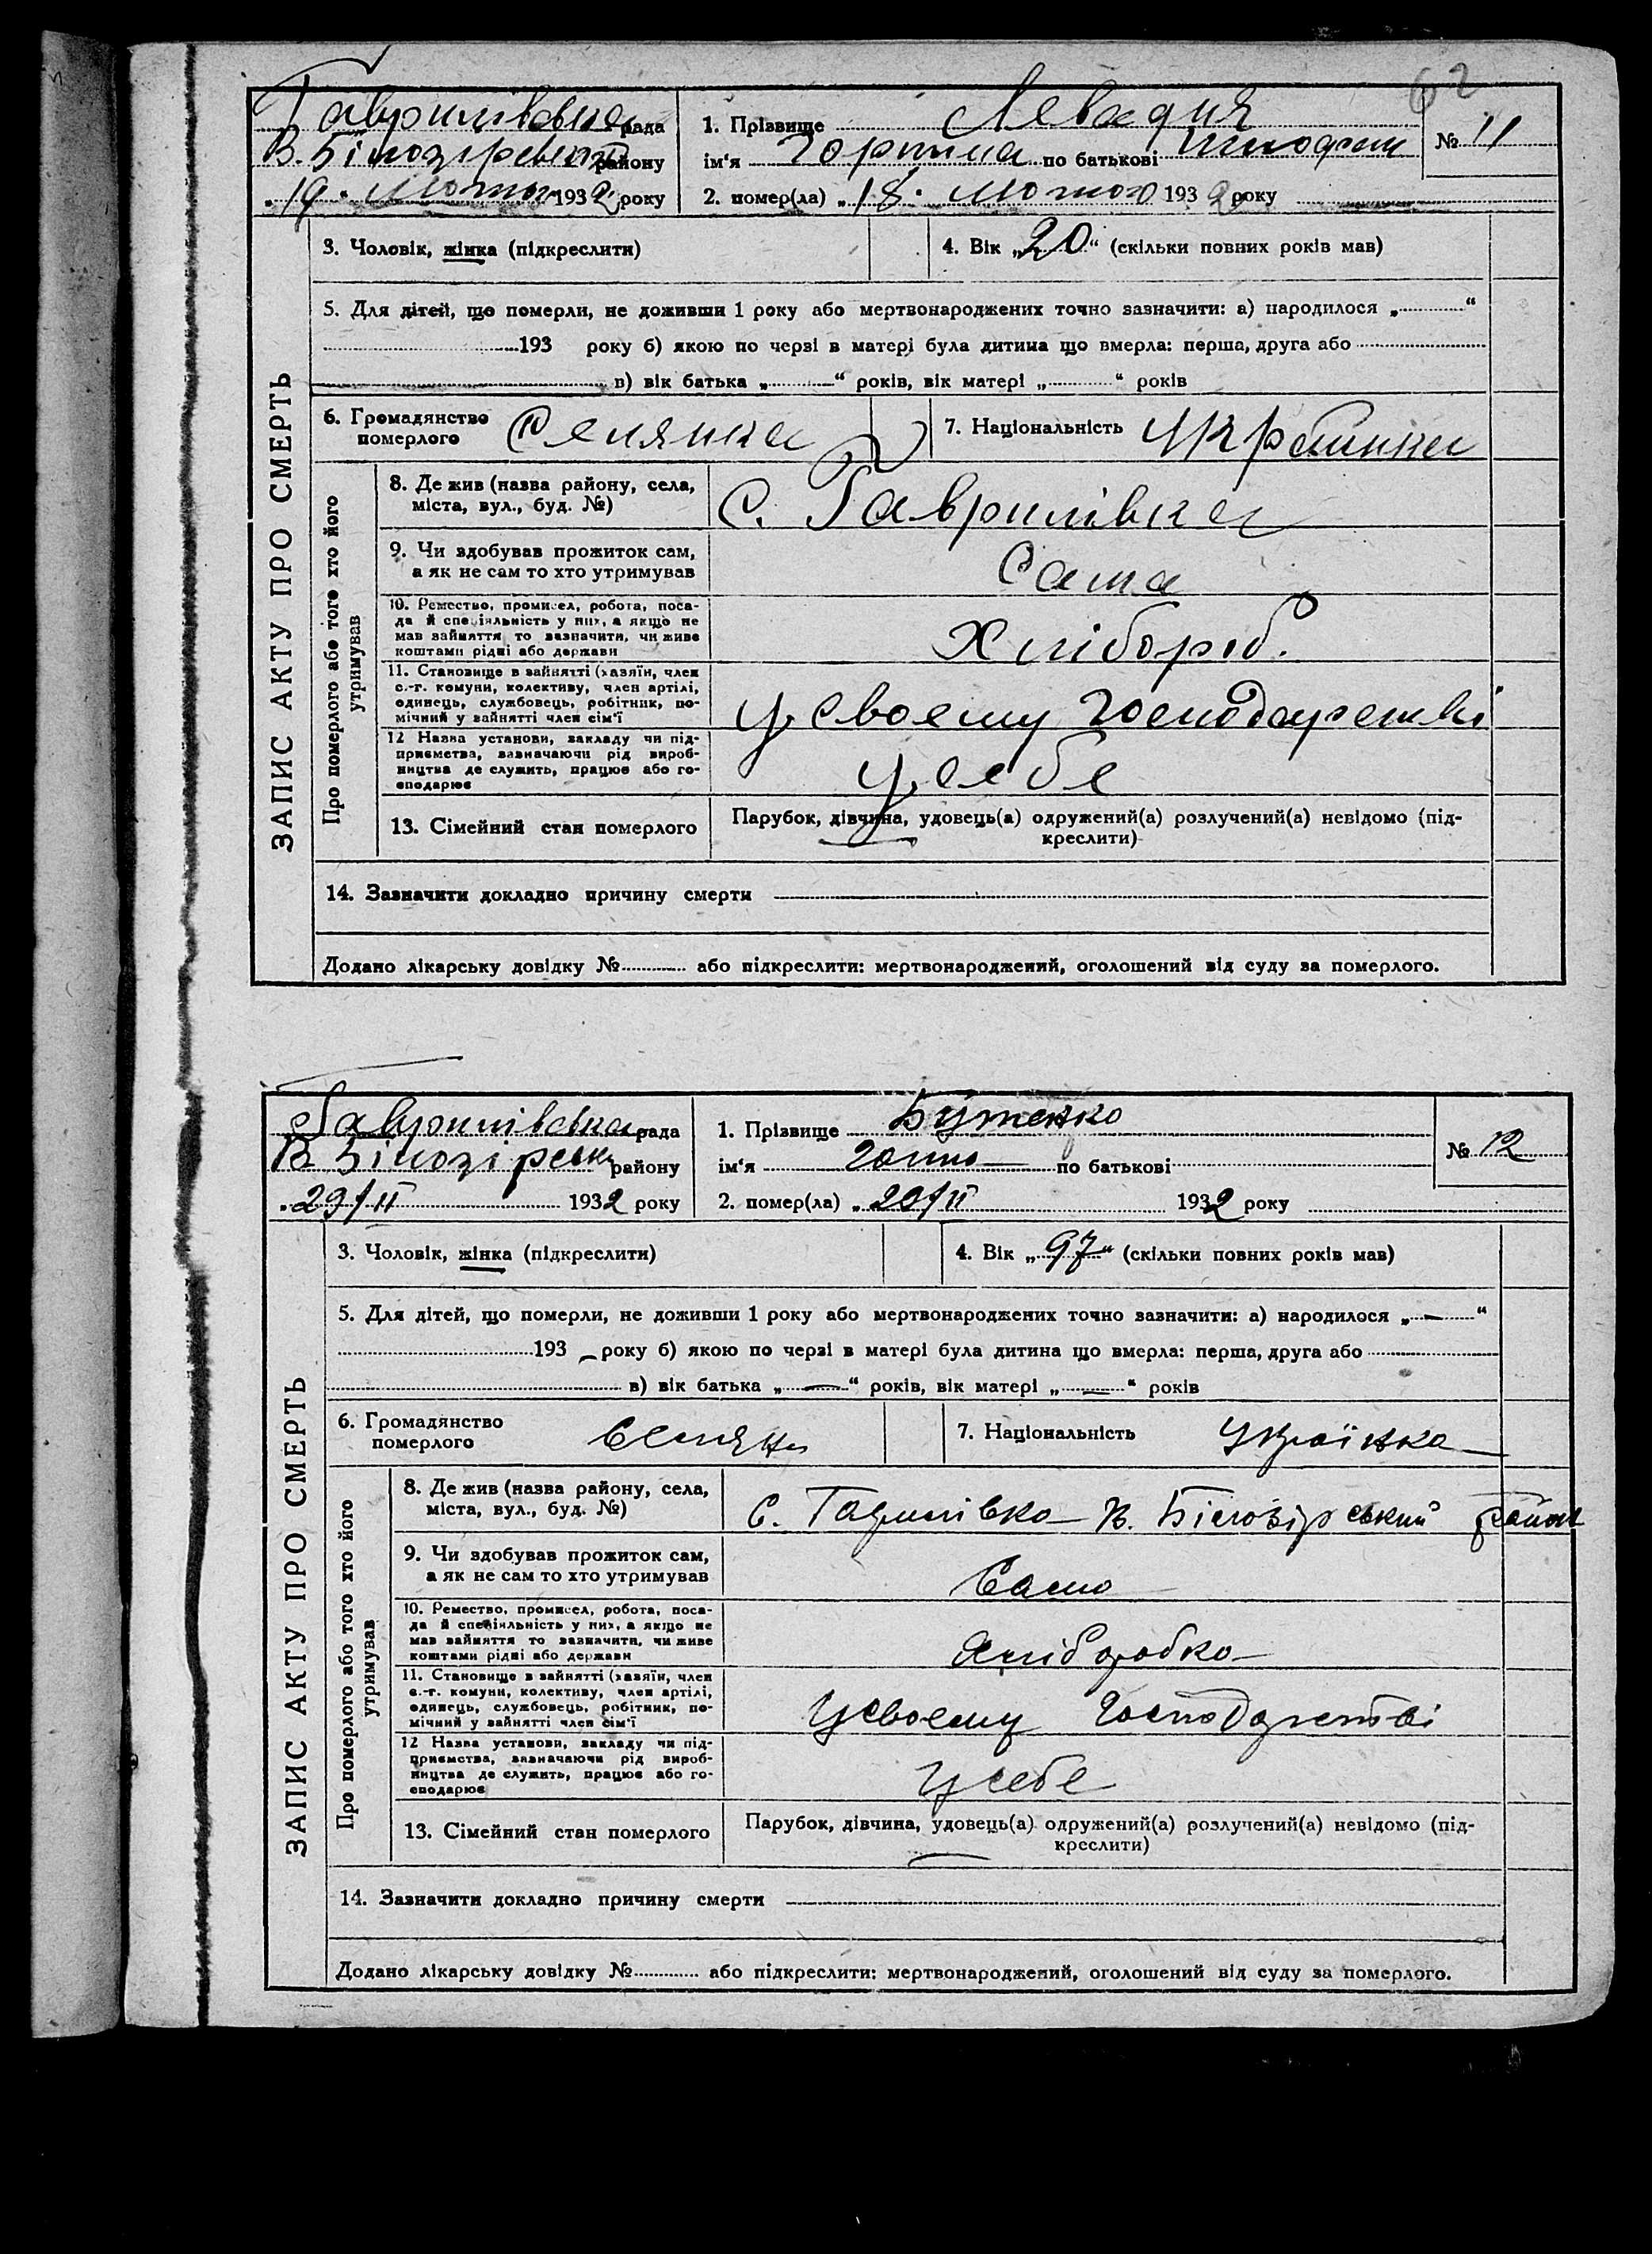 62
Гаврилівська рада
В. Білозірського району
„19" лютого 1932 року
1. Прізвище Левадня
ім'я Горпина по батькові
2. помер(ла) „18" лютого 1932 року
№ 11
ЗАПИС АКТУ ПРО СМЕРТЬ
3. Чоловік, жінка (підкреслити)
4. Вік „20" (скільки повних років мав)
5. Для дітей, що померли, не доживши 1 року або мертвонароджених точно зазначити: а) народилося „ "
193 року б) якою по черзі в матері була дитина що вмерла: перша, друга або
в) вік батька „ " років, вік матері „ " років
6. Громадянство
померлого
Селянка
7. Національність Українка
Про померлого або того хто його
утримував
8. Де жив (назва району, села,
міста, вул., буд. №)
С. Гаврилівка
9. Чи здобував прожиток сам,
а як не сам то хто утримував
Сама
10. Ремество, промисел, робота, поса-
да й спеціяльність у них, а якщо не
мав зайняття то зазначити, чи живе
коштами рідні або держави
Хлібороб.
11. Становище в зайнятті (хазяїн, член
с.-г. комуни, колективу, член артілі,
одинець, службовець, робітник, по-
мічний у зайнятті член сім'ї
У своєму господарстві
12 Назва установи, закладу чи під-
приємства, зазначаючи рід вироб-
ництва де служить, працює або го-
сподарює
У себе
13. Сімейний стан померлого
Парубок, дівчина, удовець(а) одружений(а) розлучений(а) невідомо (під-
креслити)
14. Зазначити докладно причину смерти
Додано лікарську довідку № або підкреслити: мертвонароджений, оголошений від суду за померлого.
Гаврилівська рада
В Білозірськ району
„29/II 1932 року
1. Прізвище Бутенко
ім'я по батькові
2. помер(ла) „29/II 1932 року
№ 12
ЗАПИС АКТУ ПРО СМЕРТЬ
3. Чоловік, жінка (підкреслити)
4. Вік „97" (скільки повних років мав)
5. Для дітей, що померли, не доживши 1 року або мертвонароджених точно зазначити: а) народилося „ — "
193 – року б) якою по черзі в матері була дитина що вмерла: перша, друга або
в) вік батька „ — " років, вік матері „ — " років
6. Громадянство
померлого
Селянка
7. Національність Українка
Про померлого або того хто його
утримував
8. Де жив (назва району, села,
міста, вул., буд. №)
С. Гаврилівка В. Білозірський район
9. Чи здобував прожиток сам,
а як не сам то хто утримував
Сама
10. Ремество, промисел, робота, поса-
да й спеціяльність у них, а якщо не
мав зайняття то зазначити, чи живе
коштами рідні або держави
Хліборобка
11. Становище в зайнятті (хазяїн, член
с.-г. комуни, колективу, член артілі,
одинець, службовець, робітник, по-
мічний у зайнятті член сім'ї
У своєму господарстві
12 Назва установи, закладу чи під-
приємства, зазначаючи рід вироб-
ництва де служить, працює або го-
сподарює
У себе
13. Сімейний стан померлого
Парубок, дівчина, удовець(а) одружений(а) розлучений(а) невідомо (під-
креслити)
14. Зазначити докладно причину смерти
Додано лікарську довідку № або підкреслити: мертвонароджений, оголошений від суду за померлого.